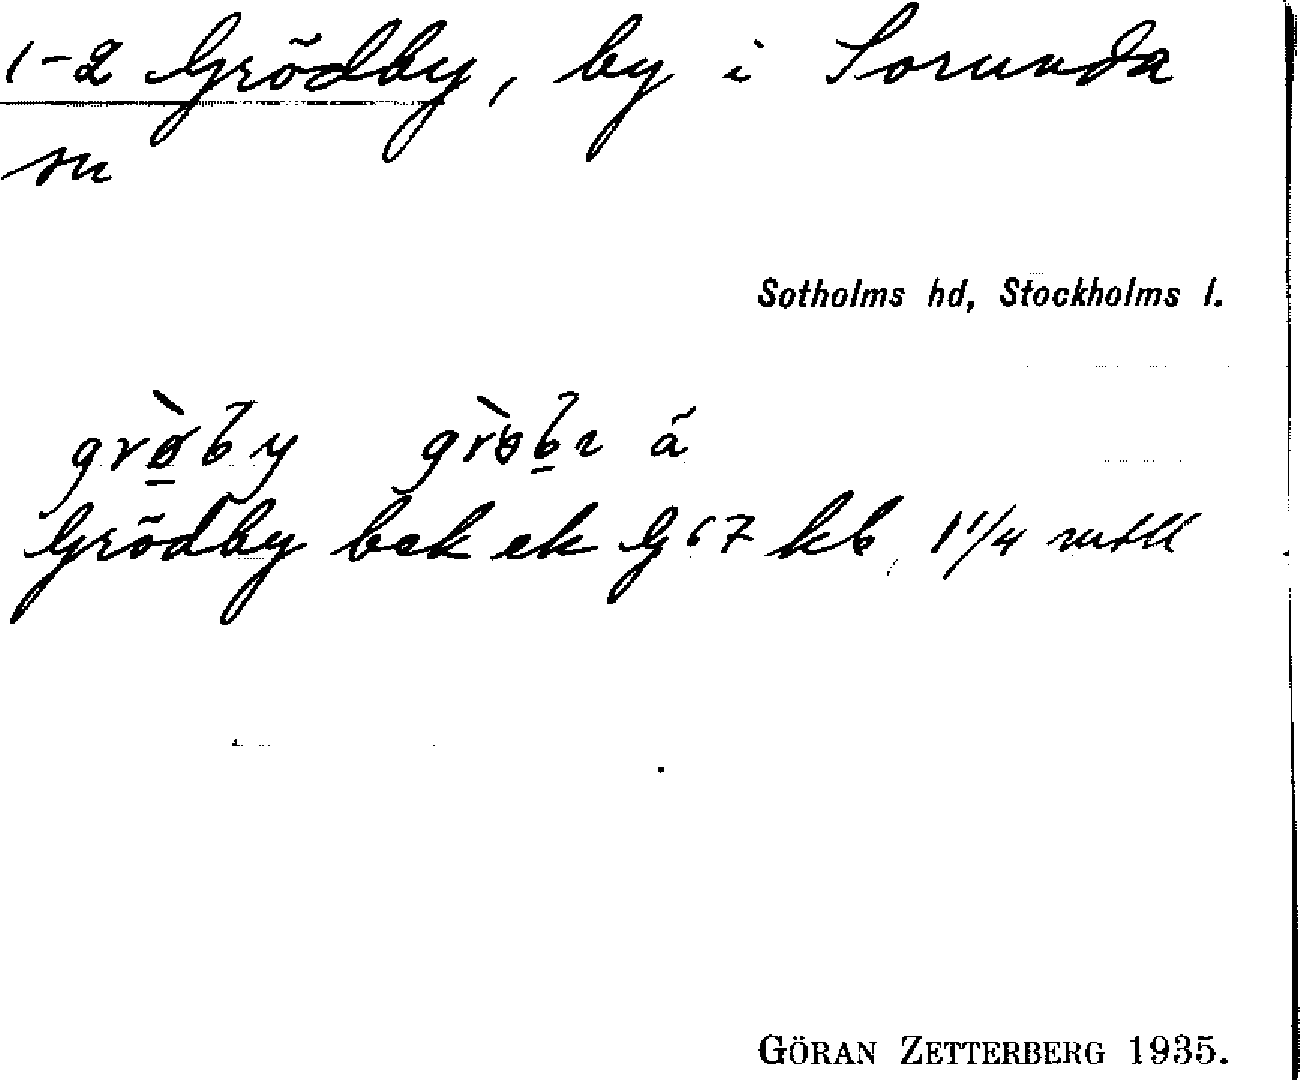 1-2 Grödby, by i Sorunda
sn
Sotholms hd, Stockholms l.
å
Grödby bek ek G 67 kb, 1 1/4 mtl
GÖRAN ZETTERBERG 1935.